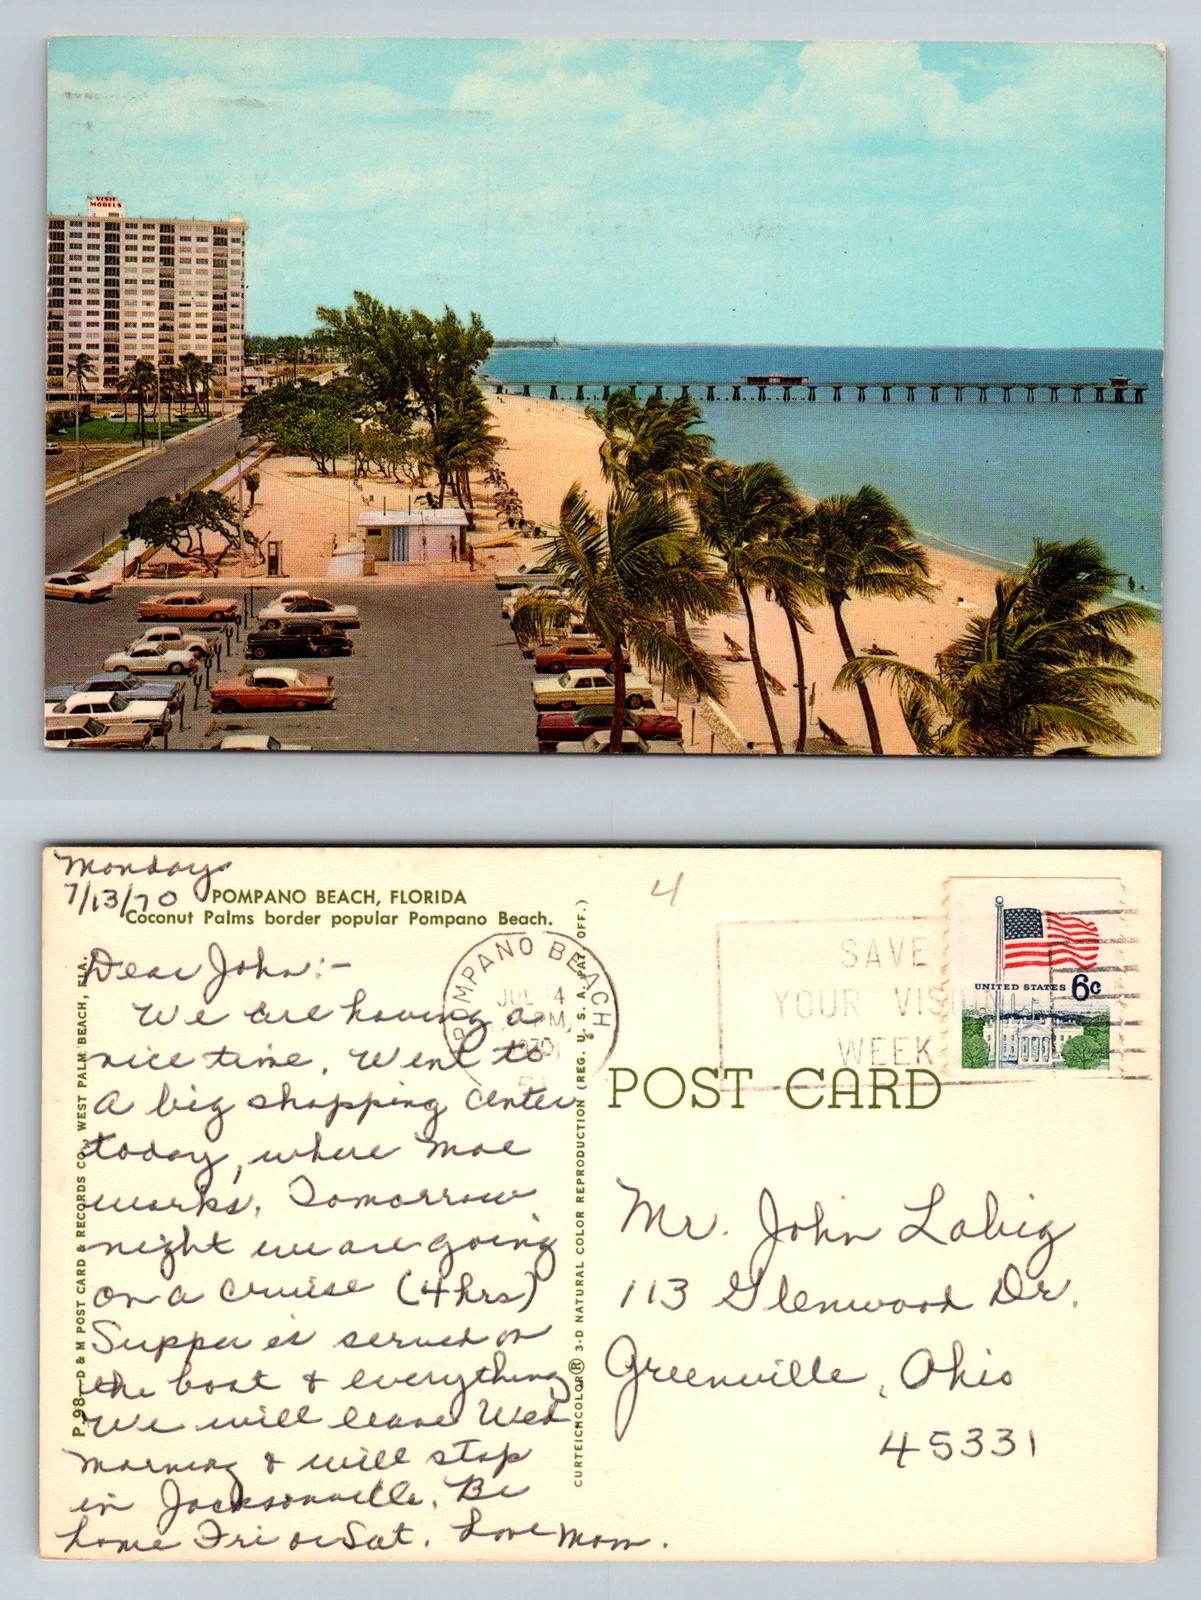 VISIT
MODELS
Monday
7/13/70
POMPANO BEACH, FLORIDA
Coconut Palms border popular Pompano Beach.
Dear John:-
We are having a
nice time. Went to
a big shopping center
today, where Mae
works. Tomorrow
night we are going
on a cruise (4 hrs)
Supper is served on
the boat & everything
We will leave Wed
morning & will stop
in Jacksonville. Be
home Fri or Sat. Love Mom.
P-98—D & M POST CARD & RECORDS CO., WEST PALM BEACH, FLA.
CURTEICHCOLOR® 3-D NATURAL COLOR REPRODUCTION (REG. U. S. A. PAT. OFF.)
POMPANO BEACH
JUL 14
PM
1970
4
SAVE
YOUR VISION
WEEK
UNITED STATES 6c
POST CARD
Mr. John Labig
113 Glenwood Dr.
Greenville, Ohio
45331